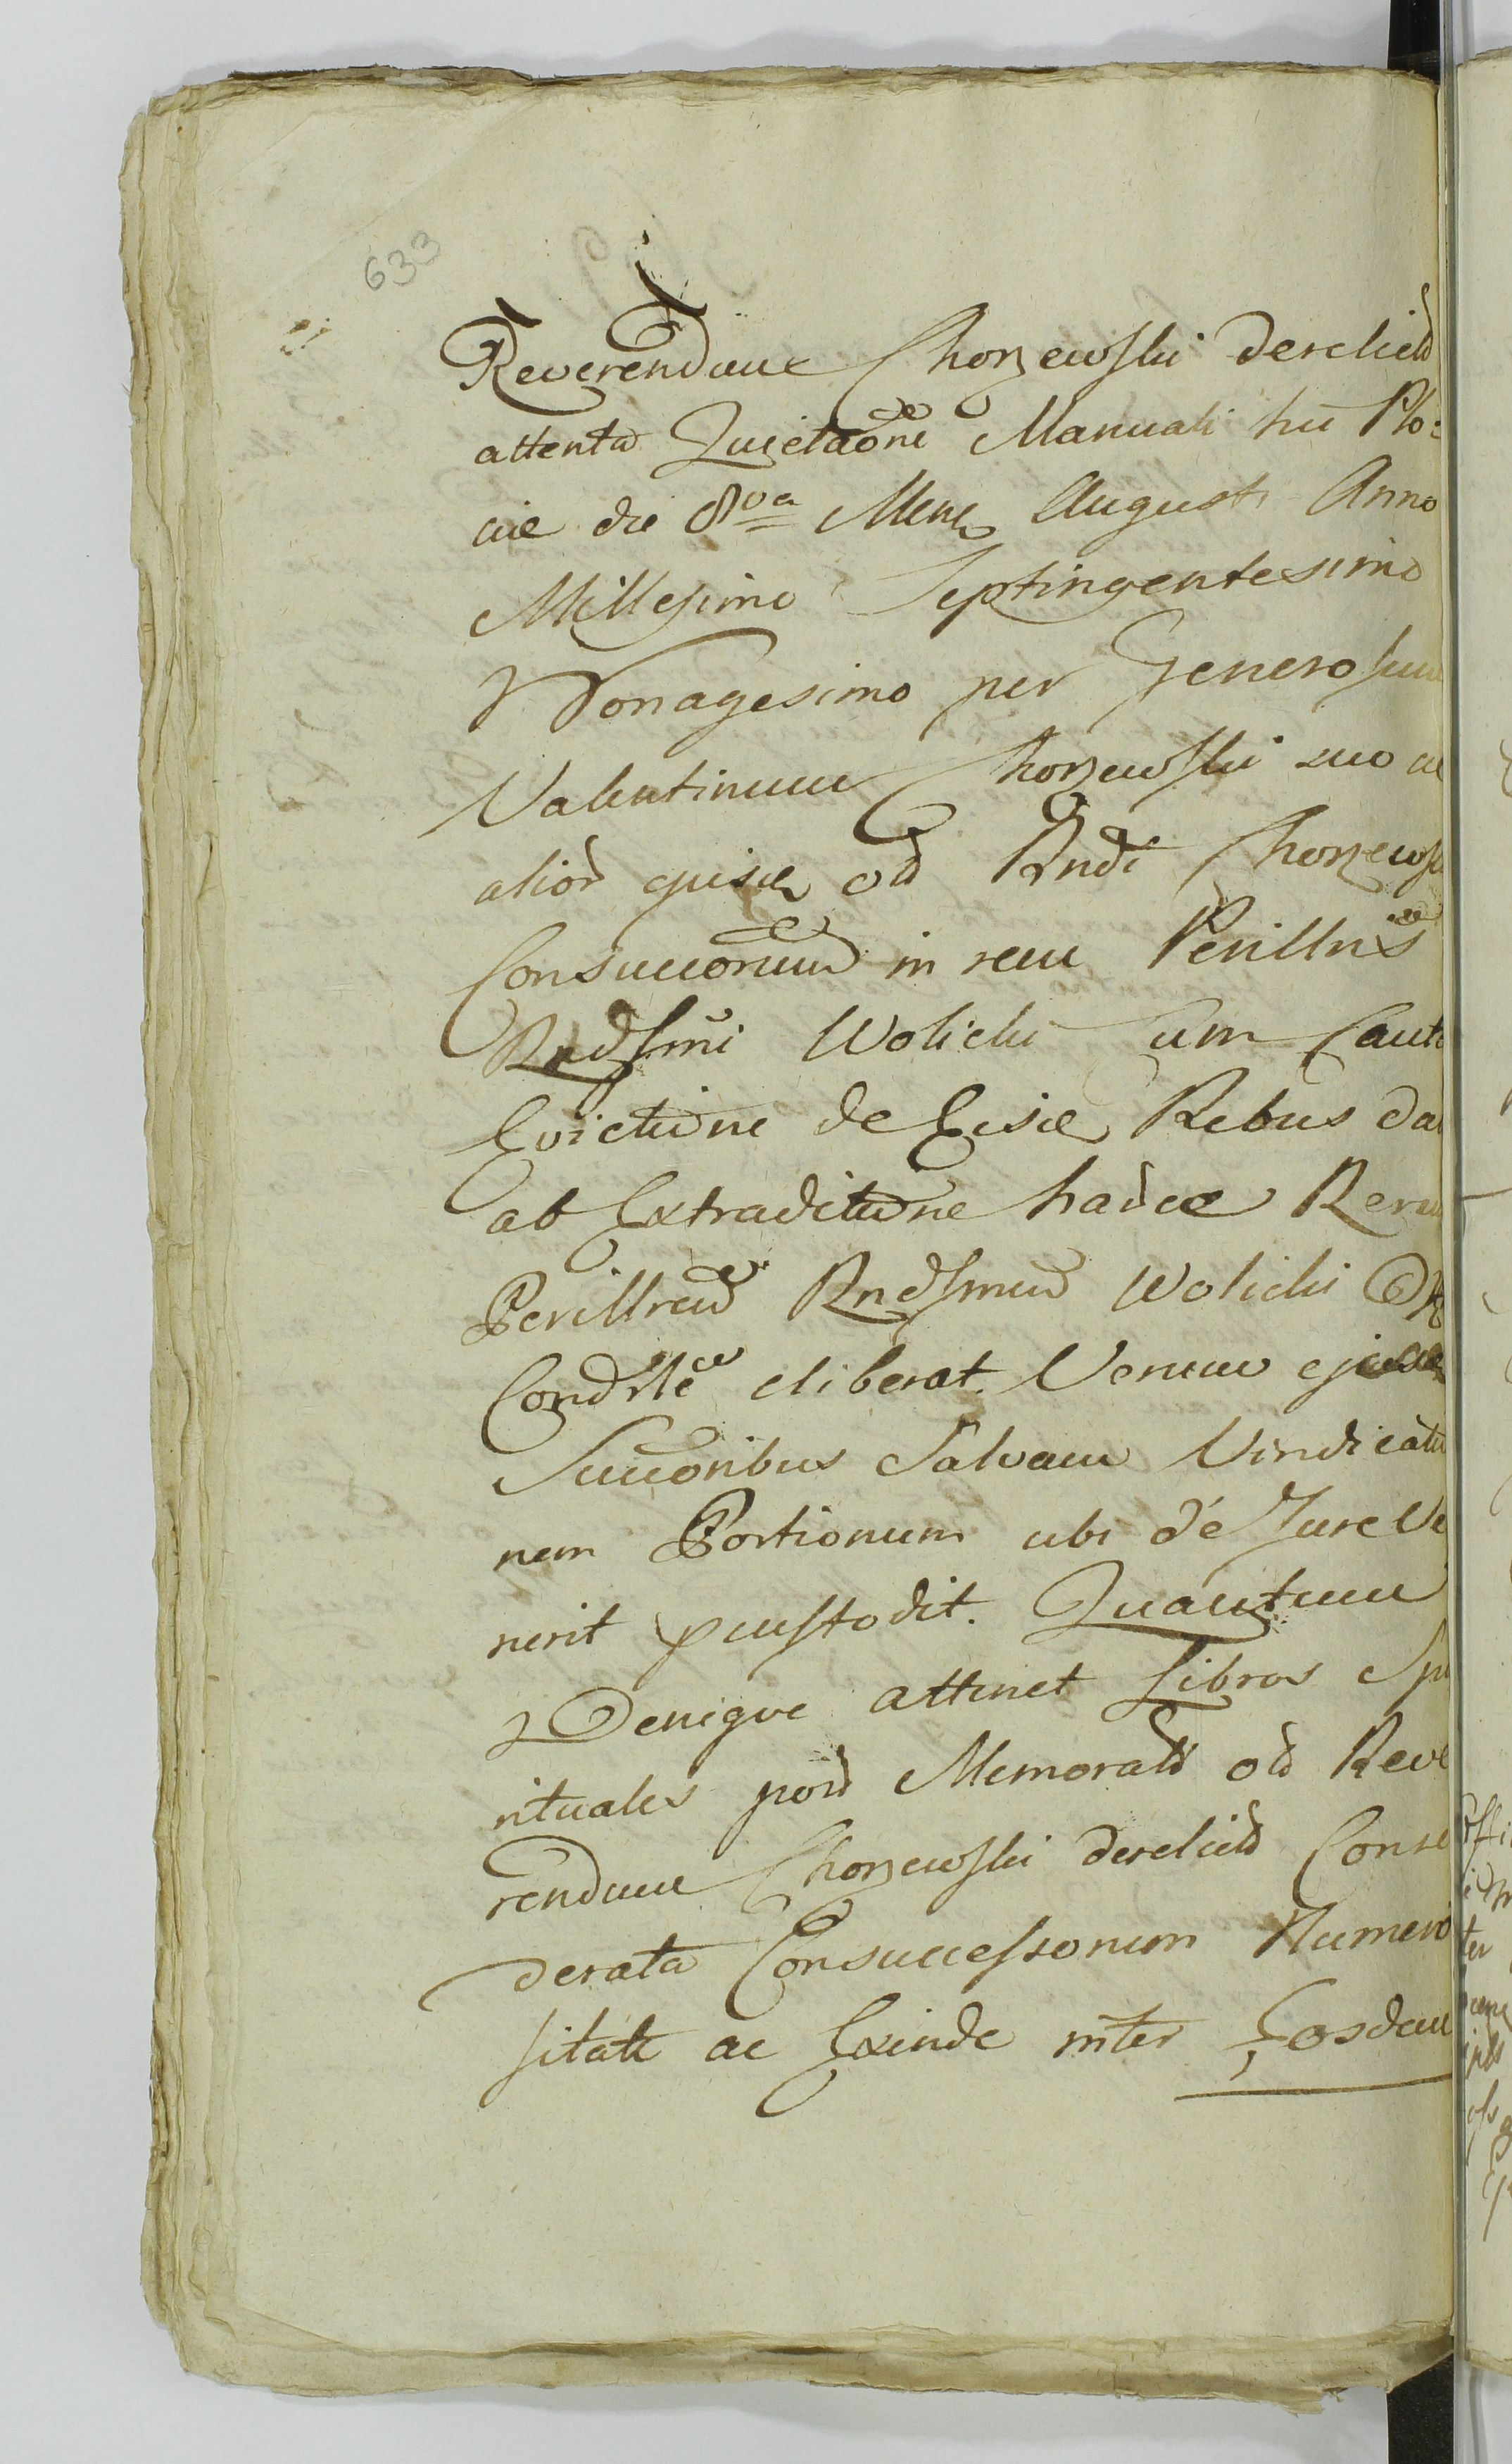 633
Reverendum Chorzewski derelicta
attenta Quietaone Manuali hic Plo:
ciae die 8va Mens Augusti Anno
Millesimo Septingentesimo
Nonagesimo per Generosum
Valentinum Chorzewski suo ac
alior ejusd olim Rndi Chorzews
Consuccorum in rem Perillris
Rndssmi Wolicki cum Cauto
Evictione de Eisd Rebus da
ab Extraditione harce Reru
Perillrem Rndssmum Wolicki
Condrlem eliberat. Verum ejusd
Succoribus Salvam Vindicatio
nem Portionum ubi de Jure Ve
nerit custodit. Quantum
Denique attinet Libros Spi
rituales post Memorati olim Reve
rendum Chorzewski derelictos Conse
derata Consuccessorum Numero
sitate ac Exinde inter Eosdem